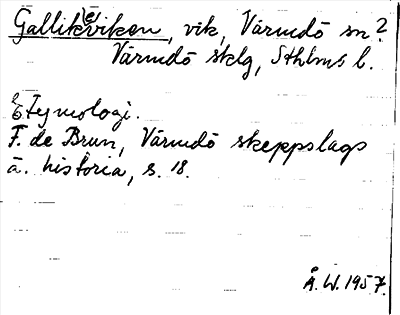 Gallikeviken, vik, Värmdö sn?
Värmdö sklg, Sthlms l.
Etymologi.
F. de Brun, Värmdö skeppslags
ä. historia, s. 18.
Å. W. 1957.